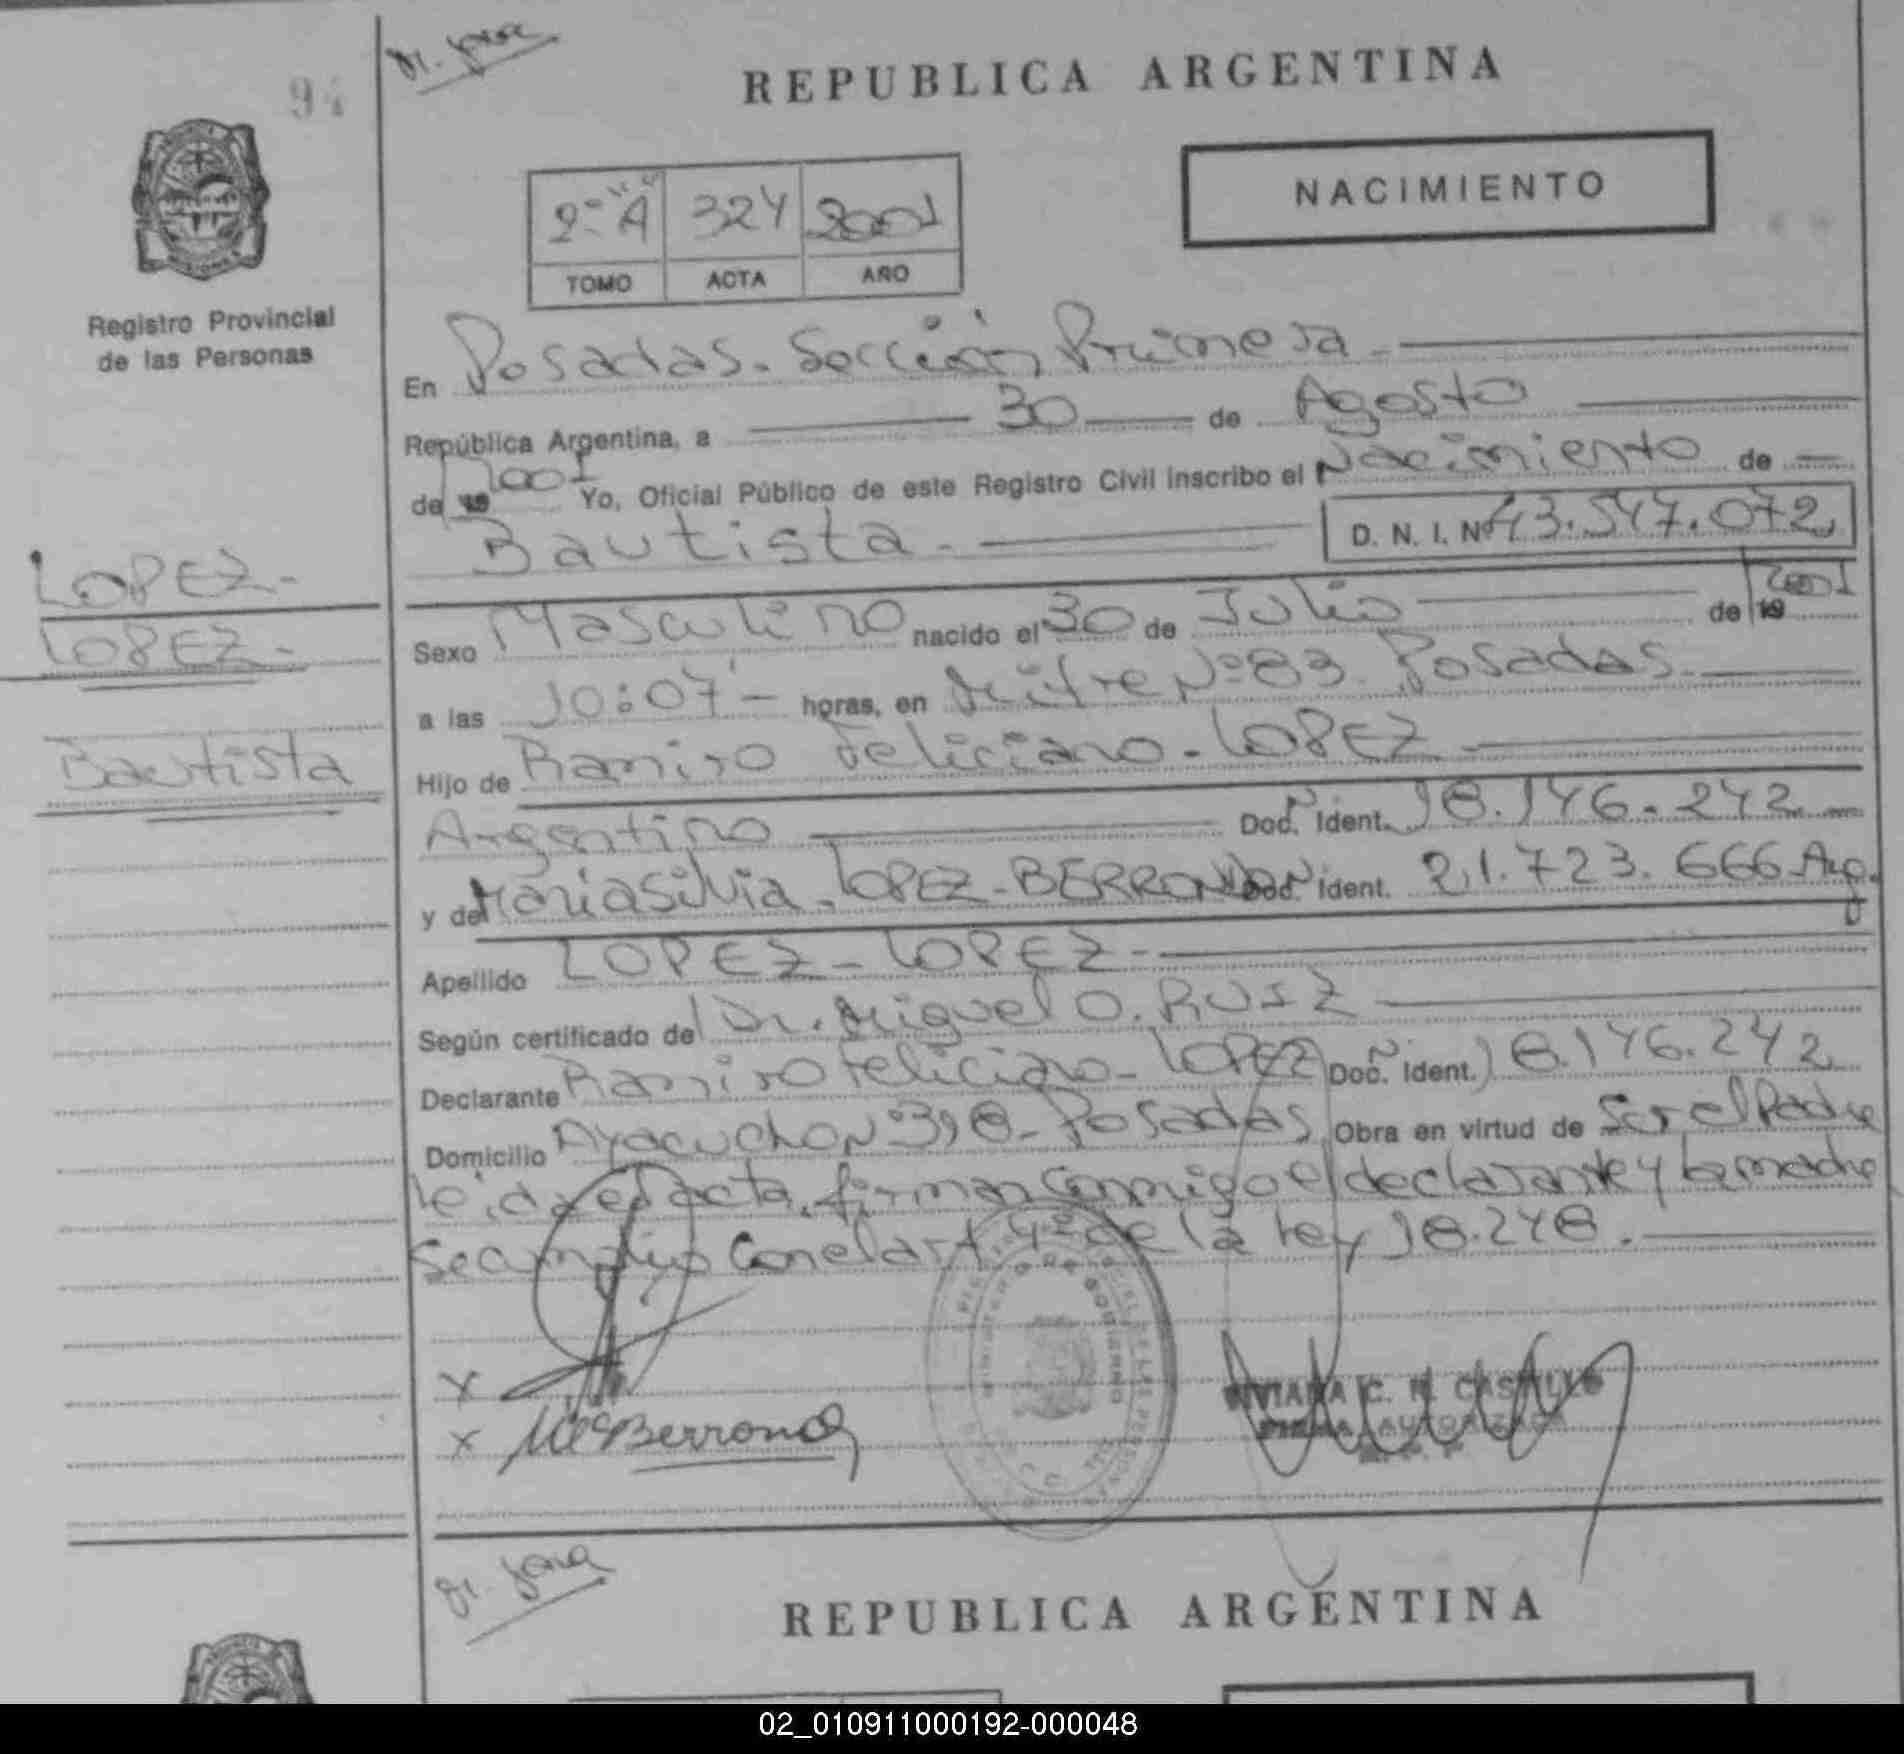 94
REPUBLICA ARGENTINA
NACIMIENTO
2º A 324 2001
TOMO ACTA AÑO
Registro Provincial
de las Personas
En Posadas. Sección Primera
República Argentina, a 30 de Agosto
de 19 2001 Yo, Oficial Público de este Registro Civil inscribo el Nacimiento de
Bautista. D. N. I. Nº 43.547.072
LOPEZ-
LOPEZ-
Bautista
Sexo Masculino nacido el 30 de Julio de 19 2001
a las 10:07 - horas, en Mitre Nº 83 Posadas.
Hijo de Ramiro Feliciano - LOPEZ
Argentino Doc. Ident. 18.146.242
y de Maria Silvia - LOPEZ - BERRONDO Doc. Ident. 21.723.666 Arg.
Apellido LOPEZ - LOPEZ -
Según certificado de Dr. Miguel O. RUIZ
Declarante Ramiro Feliciano - LOPEZ Doc. Ident. 18.146.242
Domicilio Ayacucho Nº 398 - Posadas Obra en virtud de Ser el Padre
leida el acta, firman conmigo el declarante y la madre
Se cumplio con el art 4º de la ley 18.248.
x
x Berrondo
VIVIANA C. N. CASTILLO
FIRMA AUTORIZADA
REPUBLICA ARGENTINA
02_010911000192-000048